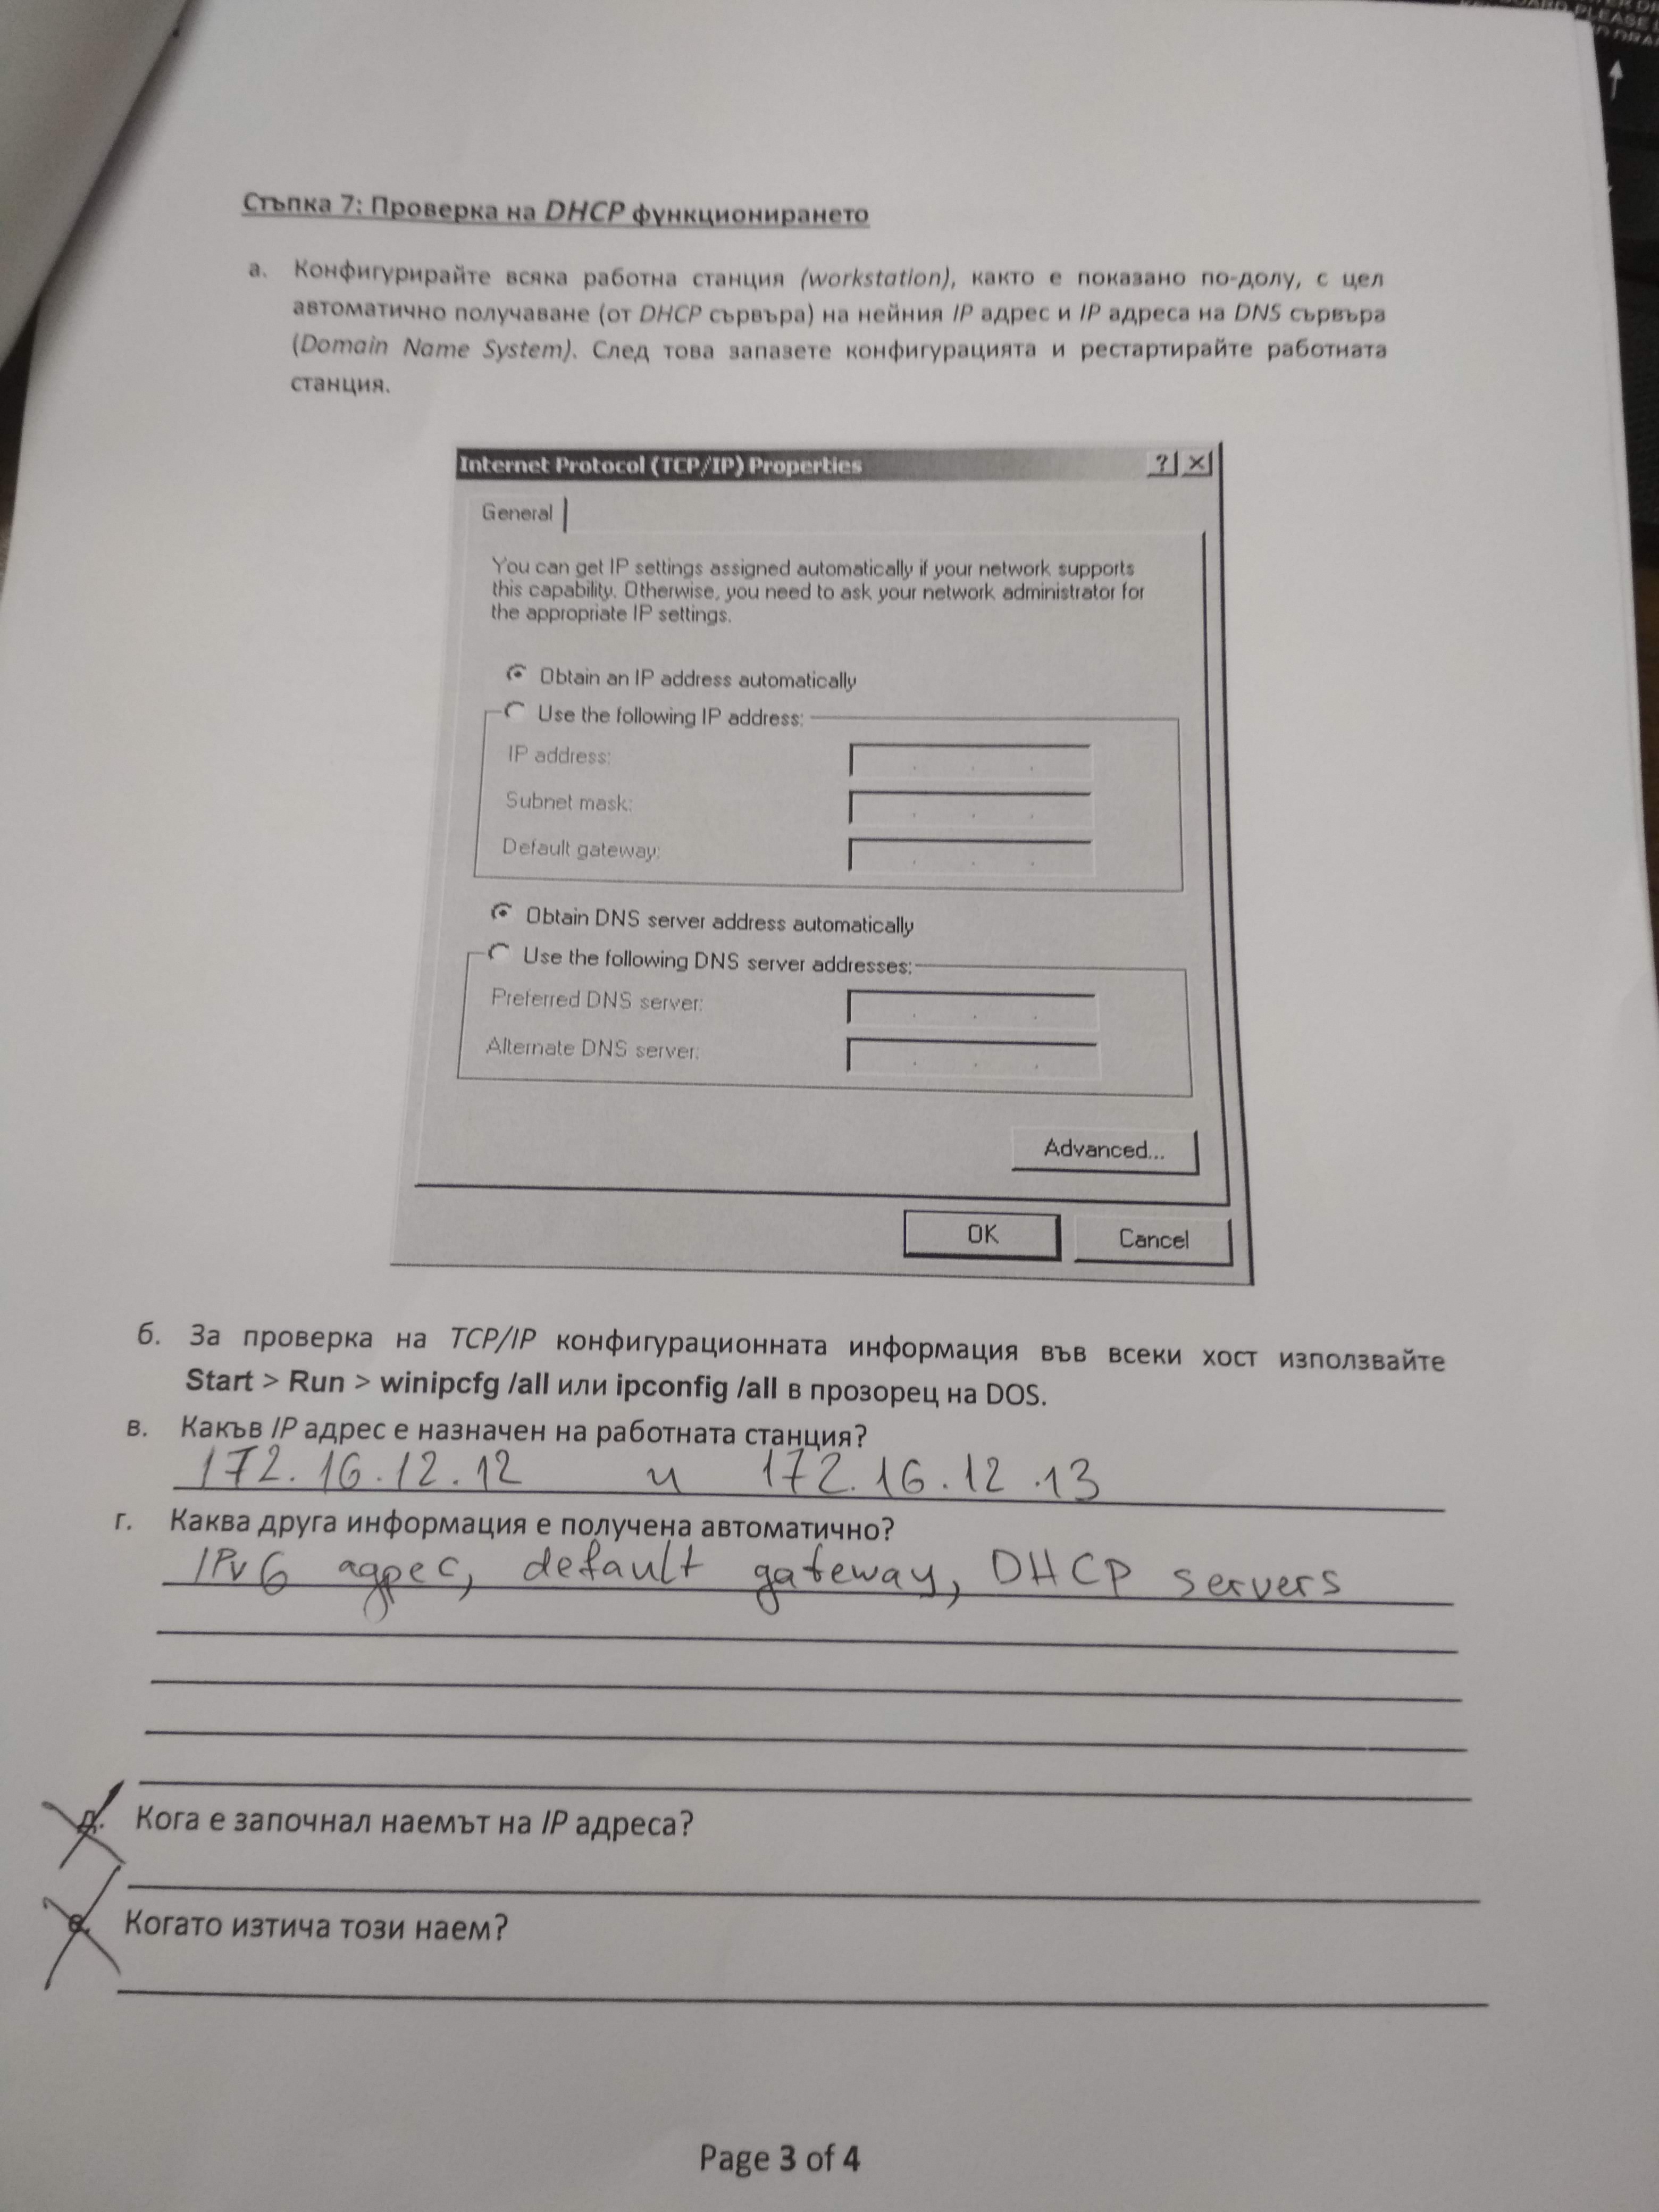 Стъпка 7: Проверка на DHCP функционирането
а. Конфигурирайте всяка работна станция (workstation), както е показано по-долу, с цел
автоматично получаване (от DHCP сървъра) на нейния IP адрес и IP адреса на DNS сървъра
(Domain Name System). След това запазете конфигурацията и рестартирайте работната
станция.
Internet Protocol (TCP/IP) Properties
General
You can get IP settings assigned automatically if your network supports
this capability. Otherwise, you need to ask your network administrator for
the appropriate IP settings.
Obtain an IP address automatically
Use the following IP address:
IP address:
Subnet mask:
Default gateway:
Obtain DNS server address automatically
Use the following DNS server addresses:
Preferred DNS server:
Alternate DNS server:
Advanced...
OK Cancel
б. За проверка на TCP/IP конфигурационната информация във всеки хост използвайте
Start > Run > winipcfg /all или ipconfig /all в прозорец на DOS.
в. Какъв IP адрес е назначен на работната станция?
172.16.12.12 и 172.16.12.13
г. Каква друга информация е получена автоматично?
IPv6 адрес, default gateway, DHCP servers
д. Кога е започнал наемът на IP адреса?
е. Когато изтича този наем?
Page 3 of 4